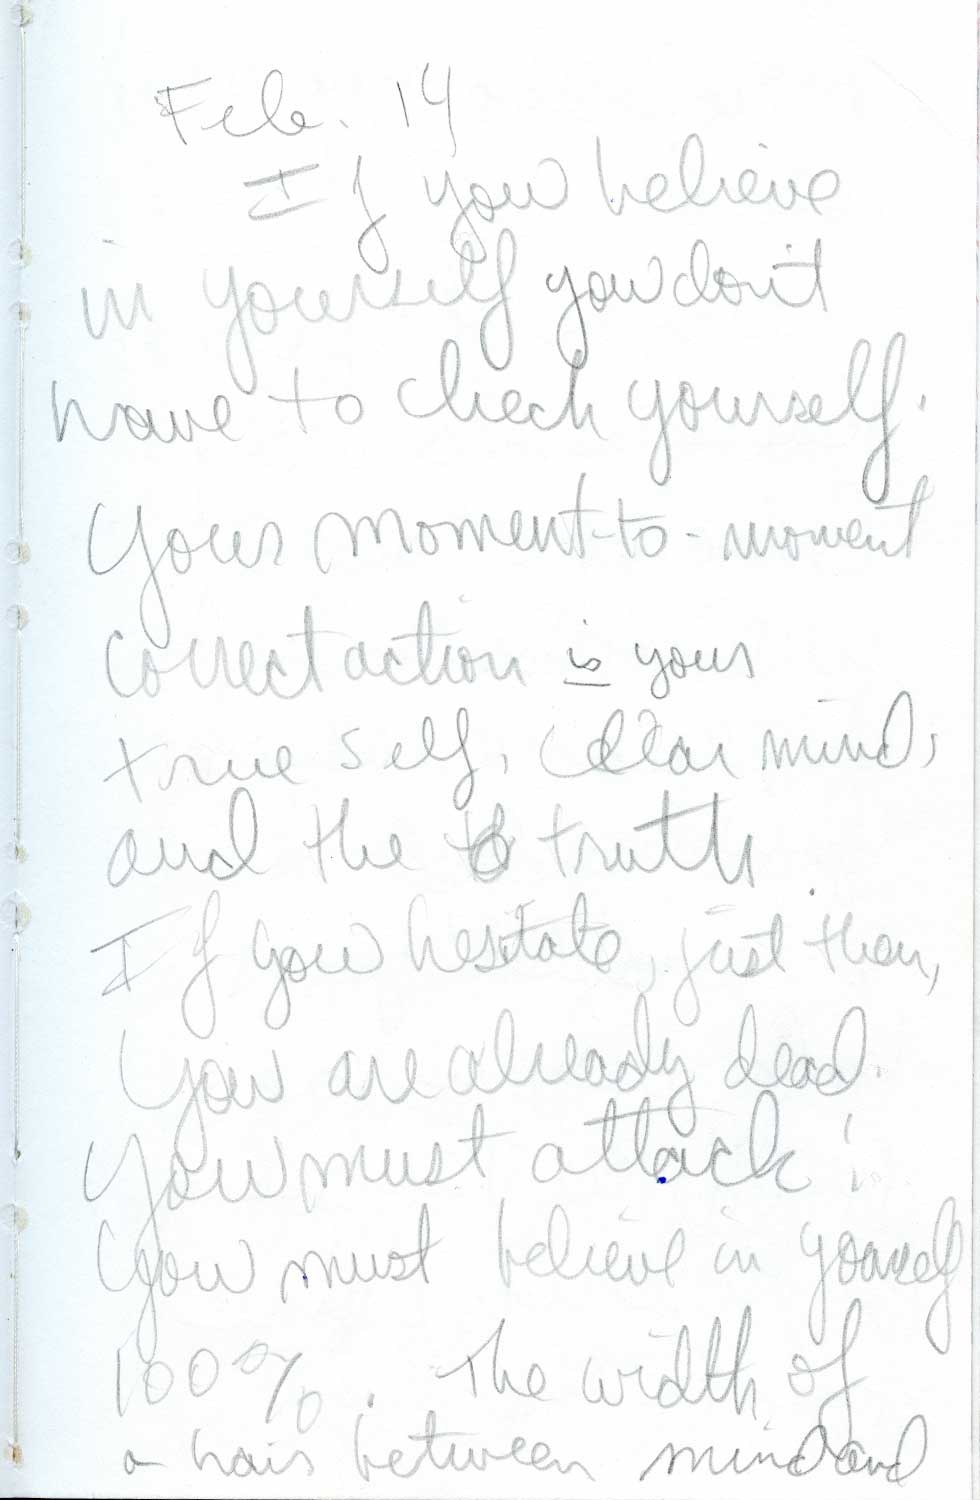 Feb. 14
If you believe
in yourself you don't
have to check yourself.
Your moment-to-moment
correct action is your
true self, clear mind,
and the truth
If you hesitate, just then,
you are already dead.
You must attack!
You must believe in yourself
100%. The width of
a hair between mind and